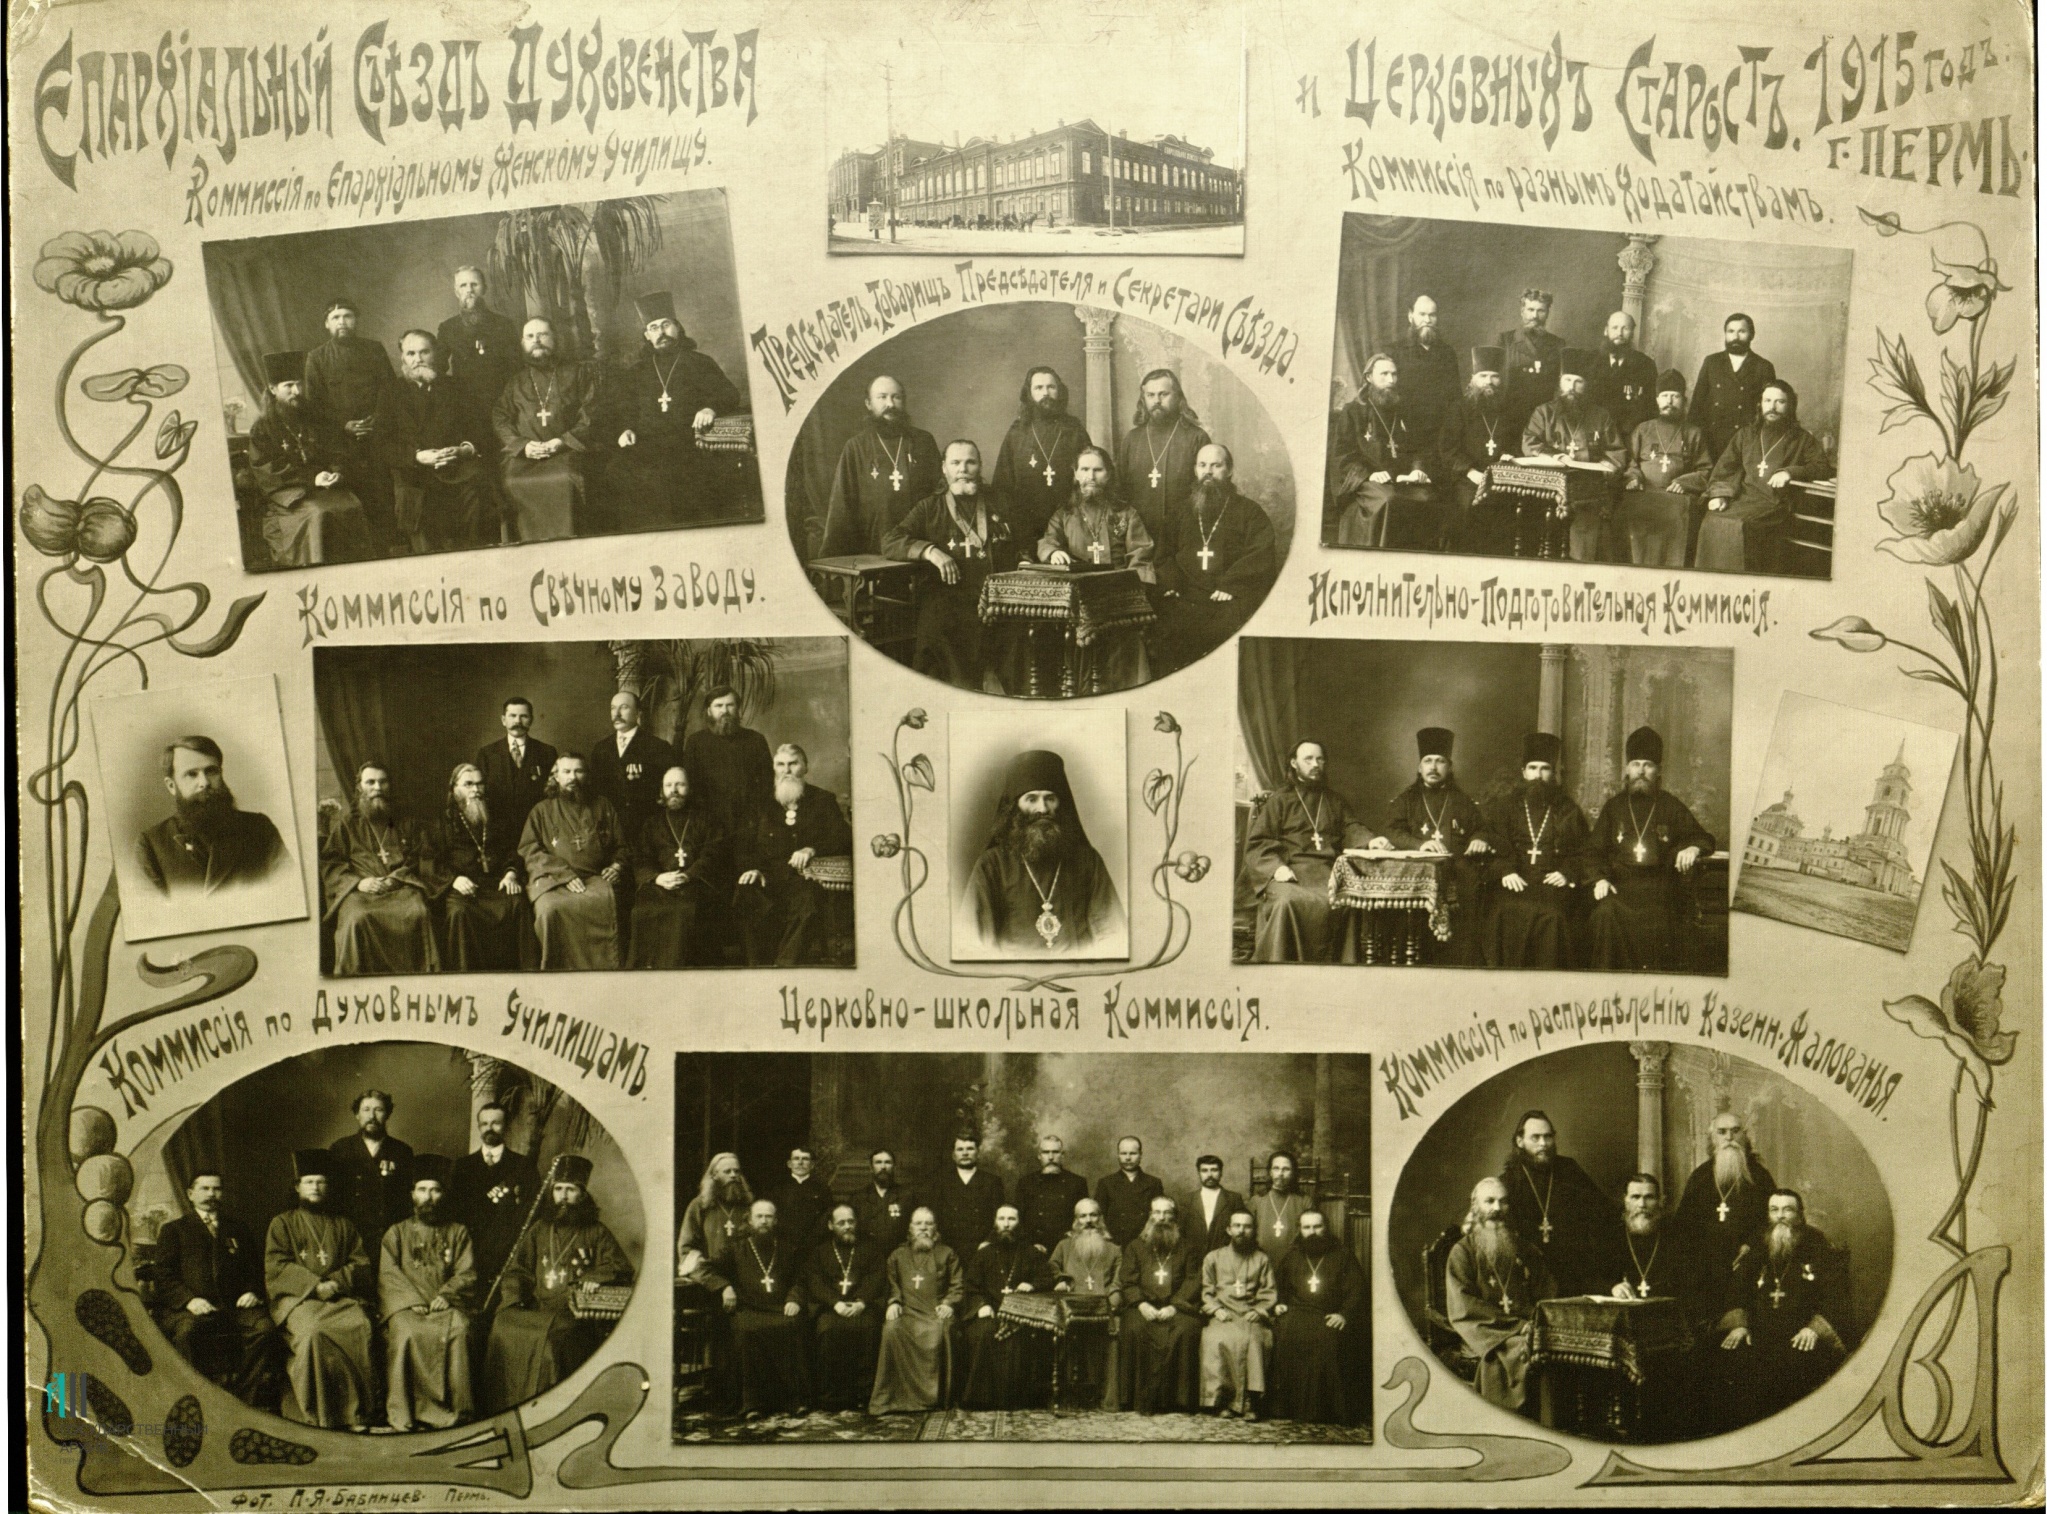 Епархіальный Съѣздъ Духовенства
и Церковныхъ Старостъ. 1915 годъ.
г. Пермь.
Коммиссія по Епархіальному Женскому Училищу.
Коммиссія по разнымъ ходатайствамъ.
Предсѣдатель, Товарищъ Предсѣдателя и Секретари Съѣзда.
Коммиссія по Свѣчному Заводу.
Исполнительно-Подготовительная Коммиссія.
Коммиссія по Духовнымъ Училищамъ.
Церковно-школьная Коммиссія.
Коммиссія по распредѣленію Казенн. Жалованья.
Фот. П. Я. Бабинцев. Пермь.